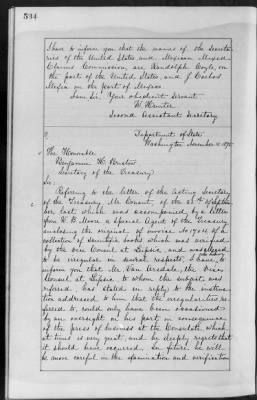 534
I have to inform you that the names of the Secreta-
ries of the United States and Mexican Mixed
Claims Commission, are Randolph Coyle, on
the part of the United States, and J. Carlos
Mexia on the part of Mexico.
I am Sir: Your obedient servant
W. Hunter
Second Assistant Secretary
Department of State,
Washington, November 10, 1875
The Honorable
Benjamin H. Bristow
Secretary of the Treasury
Sir:
Referring to the letter of the Acting Secretary
of the Treasury, Mr. Conant, of the
ber last, which was accompanied by a letter
from Special Agent of the Treasury,
enclosing the original of invoice No.
collection of books which was verified
by the Vice Consul at Leipsic, and was alleged
to be irregular in several respects, I have to
inform you that Mr. the
Consul at Leipsic, to whom the subject was
referred, has stated in reply to the instruc-
tion addressed to him that the irregularities re-
ferred to, could only have been occasioned
by an oversight on his part in consequence
of the press of business at the Consulate, which
at times is very great, and he deeply regrets that
it should have occurred. In future he will
be more careful in the examination and verification